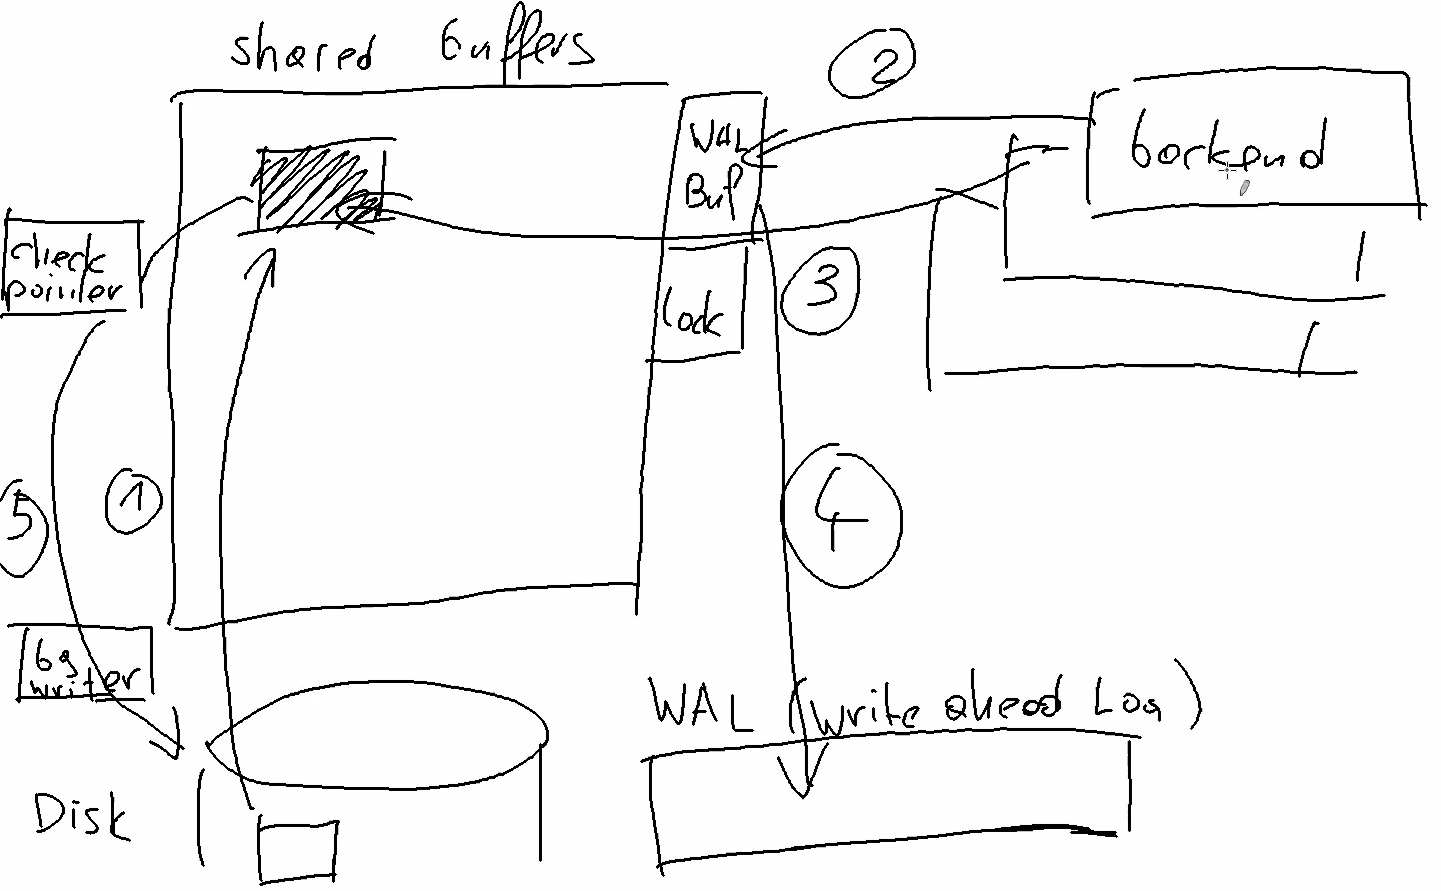 shared buffers
2
WAL
Buf
backend
check
pointer
3
lock
1
5
4
bg
writer
WAL (write ahead Log)
Disk